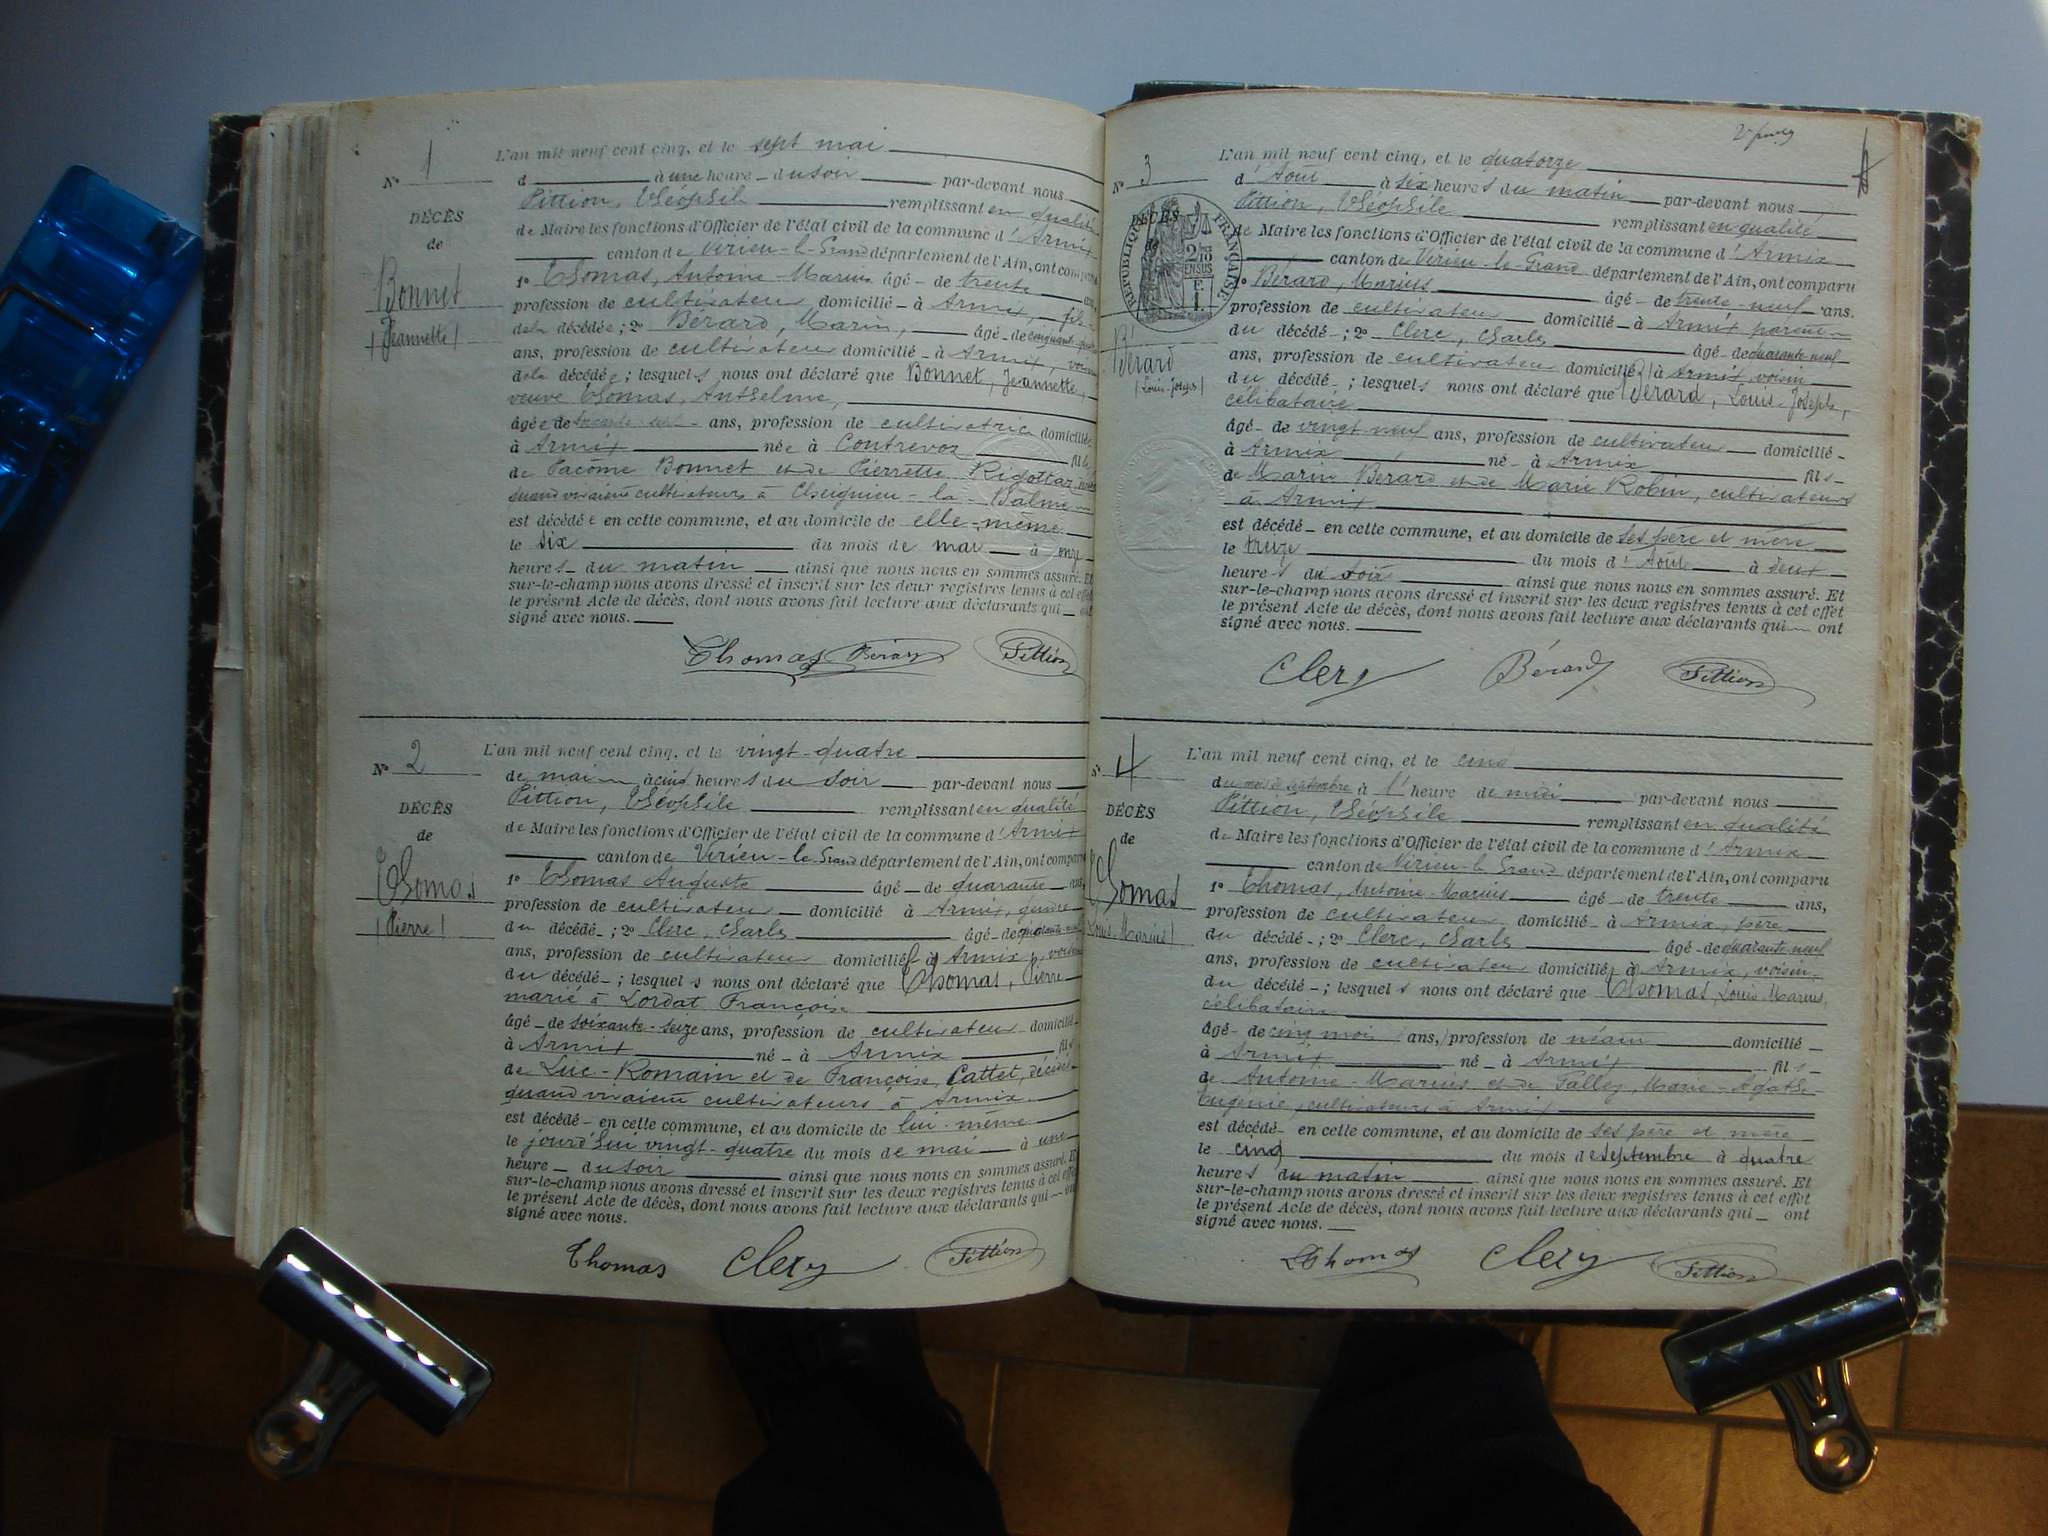 N° 1
DÉCÈS
de
Bonnet
(Jeannette)
L'an mil neuf cent cinq, et le sept mai
d à une heure du soir par-devant nous
Pittion, Théophile remplissant en qualité
de Maire les fonctions d'Officier de l'état civil de la commune d'Armix
canton de Virieu-le-Grand département de l'Ain, ont comparu
1° Thomas, Antoine-Marius âgé de trente ans,
profession de cultivateur domicilié à Armix, fils
de la décédée; 2° Bérard, Marin, âgé de
ans, profession de cultivateur domicilié à Armix, voisin
de la décédée; lesquels nous ont déclaré que Bonnet, Jeannette,
veuve Thomas, Anthelme,
âgée de ans, profession de cultivatrice domiciliée
à Armix née à Contrevoz fille
de Pacôme Bonnet et de Pierrette
quand vivaient cultivateurs à Cheignieu-la-Balme
est décédée en cette commune, et au domicile de elle-même
le six du mois de mai à onze
heures du matin ainsi que nous nous en sommes assuré. Et
sur-le-champ nous avons dressé et inscrit sur les deux registres tenus à cet effet
le présent Acte de décès, dont nous avons fait lecture aux déclarants qui ont
signé avec nous.
Thomas Bérard Pittion
N° 2
DÉCÈS
de
Thomas
(Pierre)
L'an mil neuf cent cinq, et le vingt-quatre
de mai à cinq heures du soir par-devant nous
Pittion, Théophile remplissant en qualité
de Maire les fonctions d'Officier de l'état civil de la commune d'Armix
canton de Virieu-le-Grand département de l'Ain, ont comparu
1° Thomas Auguste âgé de quarante ans,
profession de cultivateur domicilié à Armix, gendre
du décédé; 2° Clerc, Charles âgé de quarante-neuf
ans, profession de cultivateur domicilié à Armix, voisin
du décédé; lesquels nous ont déclaré que Thomas, Pierre
marié à Lordat Françoise
âgé de soixante-seize ans, profession de cultivateur domicilié
à Armix né à Armix fils
de Luc-Romain et de Françoise Cattet, décédés
quand vivaient cultivateurs à Armix
est décédé en cette commune, et au domicile de lui-même
le jourd'hui vingt-quatre du mois de mai à une
heure du soir ainsi que nous nous en sommes assuré. Et
sur-le-champ nous avons dressé et inscrit sur les deux registres tenus à cet effet
le présent Acte de décès, dont nous avons fait lecture aux déclarants qui ont
signé avec nous.
Thomas Clerc Pittion
N° 3
DÉCÈS
de
RÉPUBLIQUE FRANÇAISE
Bérard
(Louis-Joseph)
L'an mil neuf cent cinq, et le quatorze
d'Août à six heures du matin par-devant nous
Pittion, Théophile remplissant en qualité
de Maire les fonctions d'Officier de l'état civil de la commune d'Armix
canton de Virieu-le-Grand département de l'Ain, ont comparu
1° Bérard, Marius âgé de trente-neuf ans.
profession de cultivateur domicilié à Armix parent
du décédé; 2° Clerc, Charles âgé de quarante-neuf
ans, profession de cultivateur domicilié à Armix voisin
du décédé; lesquels nous ont déclaré que Bérard, Louis-Joseph,
célibataire
âgé de vingt-neuf ans, profession de cultivateur domicilié
à Armix né à Armix fils
de Marin Bérard et de Marie Robin, cultivateurs
à Armix
est décédé en cette commune, et au domicile de ses père et mère
le treize du mois d'Août à deux
heures du soir ainsi que nous nous en sommes assuré. Et
sur-le-champ nous avons dressé et inscrit sur les deux registres tenus à cet effet
le présent Acte de décès, dont nous avons fait lecture aux déclarants qui ont
signé avec nous.
Clerc Bérard Pittion
N° 4
DÉCÈS
de
Thomas
Louis-Marius)
L'an mil neuf cent cinq, et le cinq
du mois de septembre à l'heure de midi par-devant nous
Pittion, Théophile remplissant en qualité
de Maire les fonctions d'Officier de l'état civil de la commune d'Armix
canton de Virieu-le-Grand département de l'Ain, ont comparu
1° Thomas, Antoine-Marius âgé de trente ans,
profession de cultivateur domicilié à Armix, père
du décédé; 2° Clerc, Charles âgé de quarante-neuf
ans, profession de cultivateur domicilié à Armix, voisin
du décédé; lesquels nous ont déclaré que Thomas Louis-Marius,
célibataire
âgé de cinq mois (ans,) profession de néant domicilié
à Armix né à Armix fils
de Antoine-Marius et de Marie-Agathe
Eugénie, cultivateurs à Armix
est décédé en cette commune, et au domicile de ses père et mère
le cinq du mois de septembre à quatre
heures du matin ainsi que nous nous en sommes assuré. Et
sur-le-champ nous avons dressé et inscrit sur les deux registres tenus à cet effet
le présent Acte de décès, dont nous avons fait lecture aux déclarants qui ont
signé avec nous.
Thomas Clerc Pittion